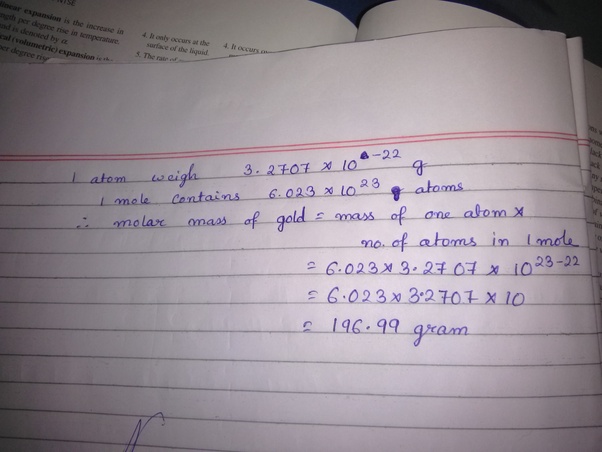 linear expansion is the increase in
length per degree rise in temperature.
and is denoted by α.
4. It only occurs at the
surface of the liquid.
4. It occurs
1 atom weigh 3.2707 × 10^-22 g
1 mole contains 6.023 × 10^23 atoms
∴ molar mass of gold = mass of one atom ×
no. of atoms in 1 mole
= 6.023 × 3.2707 × 10^23-22
= 6.023 × 3.2707 × 10
= 196.99 gram